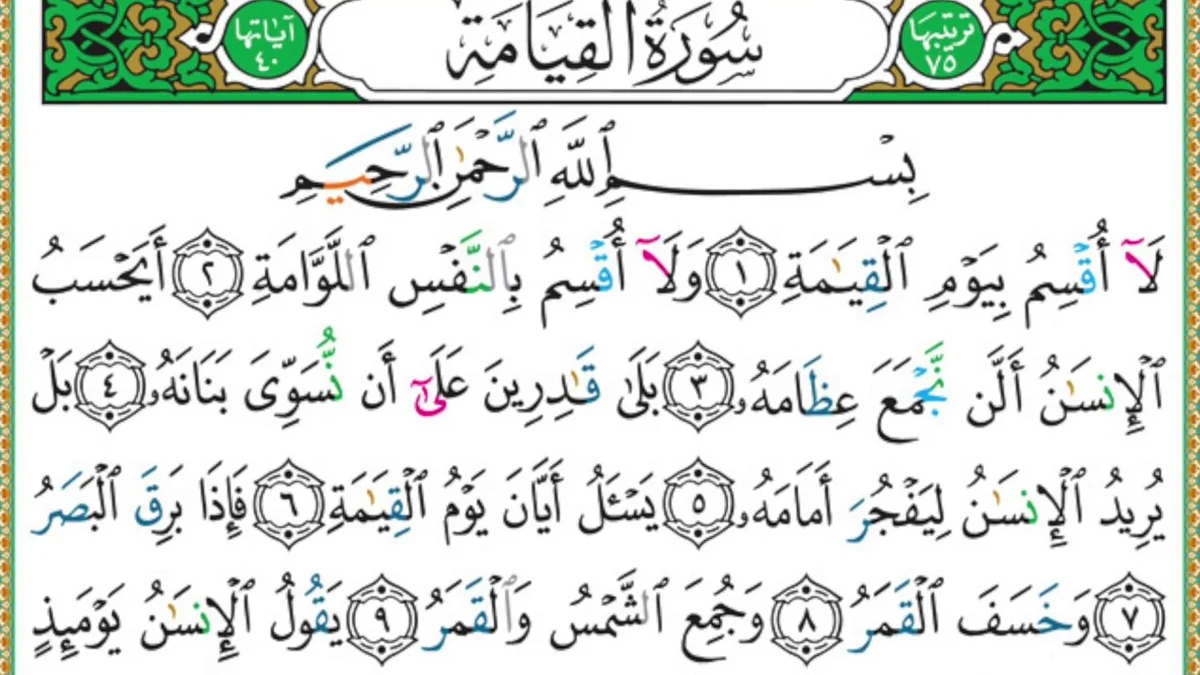 آيَاتها ٤٠ سُورَةُ الْقِيَامَةِ تَرتيبها ٧٥
بِسْمِ ٱللَّهِ ٱلرَّحْمَٰنِ ٱلرَّحِيمِ
لَآ أُقْسِمُ بِيَوْمِ ٱلْقِيَٰمَةِ ١ وَلَآ أُقْسِمُ بِٱلنَّفْسِ ٱللَّوَّامَةِ ٢ أَيَحْسَبُ
ٱلْإِنسَٰنُ أَلَّن نَّجْمَعَ عِظَامَهُۥ ٣ بَلَىٰ قَٰدِرِينَ عَلَىٰٓ أَن نُّسَوِّىَ بَنَانَهُۥ ٤ بَلْ
يُرِيدُ ٱلْإِنسَٰنُ لِيَفْجُرَ أَمَامَهُۥ ٥ يَسْـَٔلُ أَيَّانَ يَوْمُ ٱلْقِيَٰمَةِ ٦ فَإِذَا بَرِقَ ٱلْبَصَرُ
٧ وَخَسَفَ ٱلْقَمَرُ ٨ وَجُمِعَ ٱلشَّمْسُ وَٱلْقَمَرُ ٩ يَقُولُ ٱلْإِنسَٰنُ يَوْمَئِذٍ